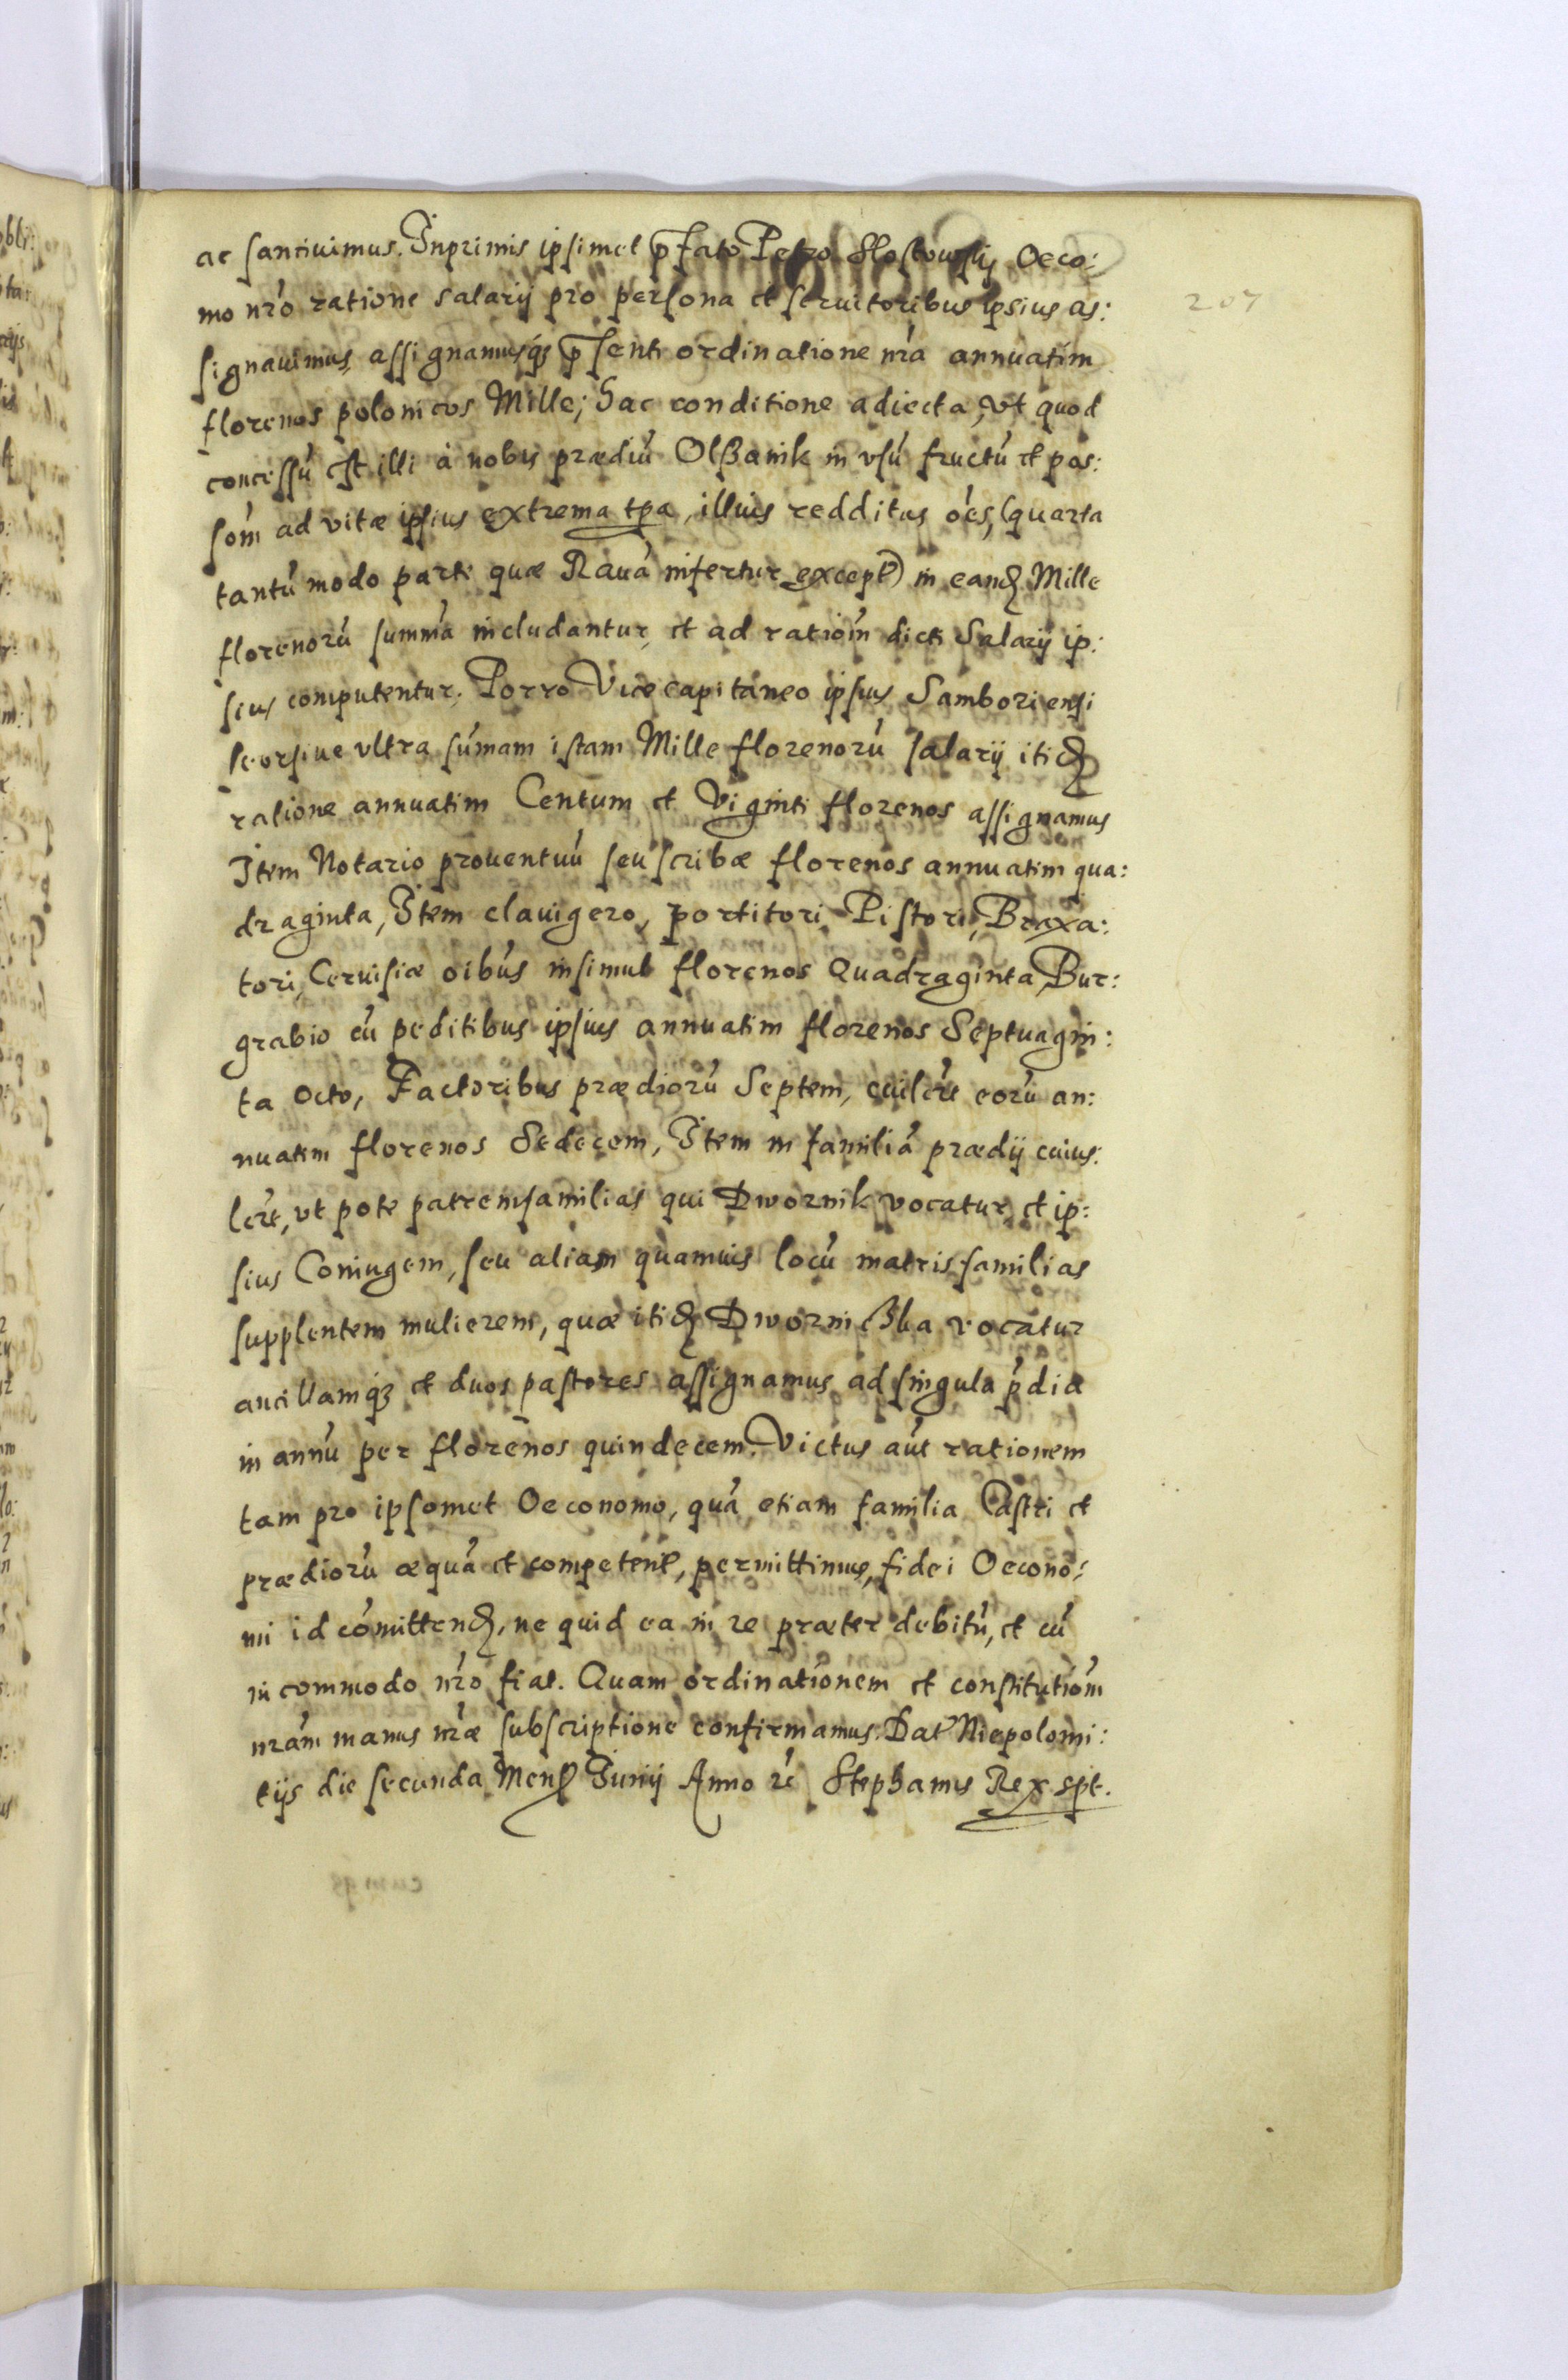 ac sanciuimus. Inprimis ipsimet p̄fato Petro Slostowsÿ Oeco:
mo nr̃o ratione salarÿ pro persona et seruitoribus ipsius as:
signauimus, assignamusq́ꝫ p̄senti ordinatione nr̃a annuatim
florenos polonicos Mille; Hac conditione adiecta, vt quod
concessú est illi à nobis prædiú Olßanik in vsú fructú et pos:
som̃ ad vitæ ipsius extrema tp̃a, illius redditus oẽs, (quarta
tantúmodo parte quæ Rauá infertur except) in eand Mille
florenorú summa includantur, et ad ratiom̃ dicti Salarÿ ip:
sius computentur. Porro Vicecapitaneo ipsius Samboriensi
seorsiue vltra súmam istam Mille florenorú salarÿ itid
ratione annuatim Centum et Viginti florenos assignamus
Item Notario prouentuú seu scribæ florenos annuatim qua:
draginta, Item clauigero, portitori Pistori, Braxa:
tori, Ceruisiæ oib́us insimul florenos Quadraginta, Bur:
grabio cú peditibus ipsius annuatim florenos Septuagin:
ta Octo, Factoribus prædiorú Septem, cuilr̃t eorú an:
nuatim florenos Sedecem, Item in familiá prædÿ cuius:
lr̃t, vt pote patremfamilias qui Dwornik vocatur, et ip:
sius Coniugem, seu aliam quamuis locú matrisfamilias
supplentem mulierem, quæ itid Dworniczka vocatur
ancillamq́ꝫ et duos pastores assignamus ad singula p̃dia
in annú per florenos quindecem. Victus aũt rationem
tam pro ipsomet Oeconomo, quá etiam familia Castri et
prædiorú æquá et competent, permittimus, fidei Oecono:
mi id cómittend, ne quid ea in re præter debitú, et cú
incommodo nr̃o fiat. Quam ordinationem et constitutiom̃
nr̃am manus nr̃æ subscriptione confirmamus. Dat Niepolomi:
tÿs die secunda Mens Iunÿ Anno ré Stephanus Rex spt.
207